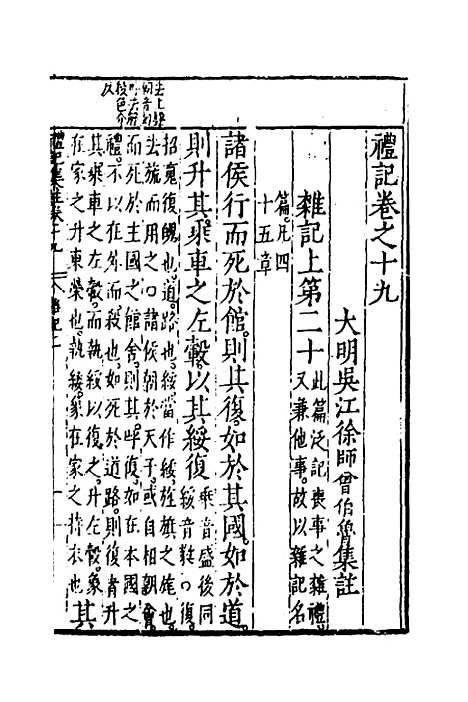 禮記卷之十九
大明吳江徐師曾伯魯集註
雜記上第二十
此篇泛記喪事之雜禮
又兼他事故以雜記名
篇凡四
十五章
諸侯行而死於館則其復如於其國如於道
則升其乘車之左轂以其綏復
乘音盛後同
綏音㽔○復
招魂復魄也道路也綏當作緌旌旗之旄也
去旒而用之○諸侯朝於天子或自相朝會
而死於主國之館舍則其呼復如在本國之
禮不以在外而殺也如死於道路則復者升
其乘車之左轂而執綏以復之升左轂象
在家之升東榮也執綏象在家之持衣也
其